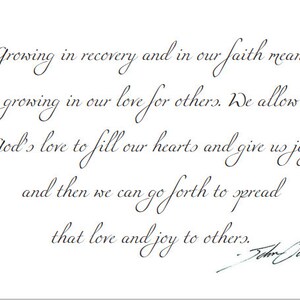 Growing in recovery and in our faith mean
growing in our love for others. We allow
God's love to fill our hearts and give us jo
and then we can go forth to spread
that love and joy to others.
John